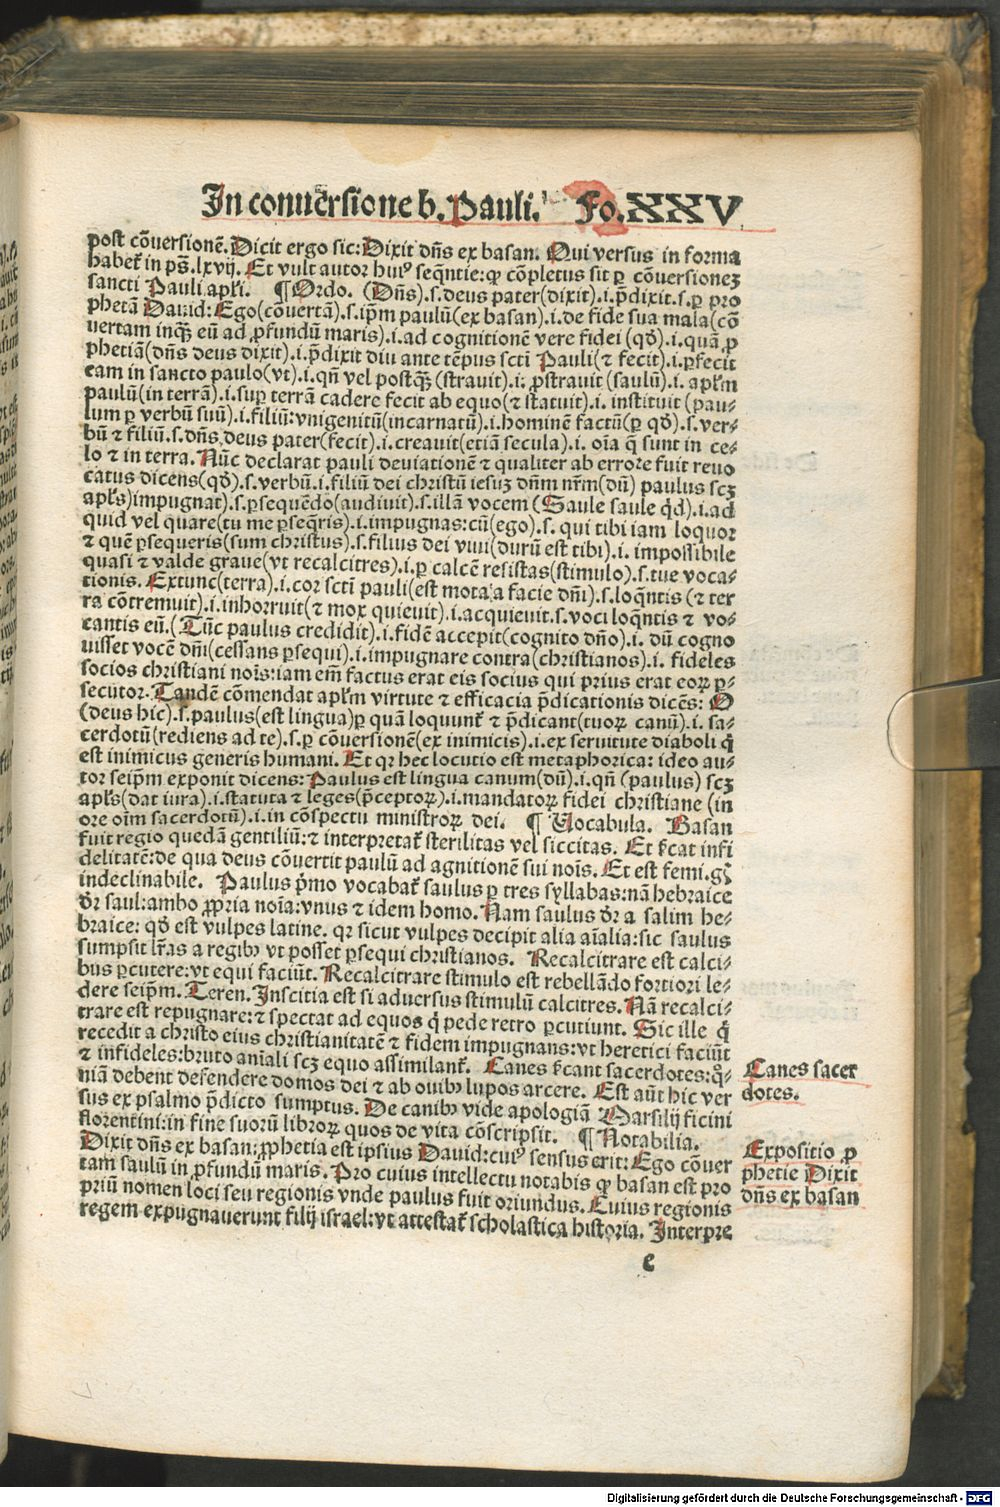 In conuersione b. Pauli. Fo. XXV
post cõuersionẽ. Dicit ergo sic: Dixit dñs ex basan. Qui versus in forma
habeť in ps̃. lxvij. Et vult autor huiꝰ seqñtie: ꝙ cõpletus sit ꝑ cõuersionez
sancti Pauli apľi. ¶ Ordo. (Dñs) .s. deus pater (dixit) .i. p̃dixit .s. ꝑ pro
phetã Dauid: Ego (cõuertã) .s. ipm̃ paulũ (ex basan) .i. de fide sua mala (cõ
uertam inqꝫ̃ eũ ad ꝓfundũ maris) .i. ad cognitionẽ vere fidei (qđ) .i. quã ꝓ
phetiã (dñs deus dixit) .i. p̃dixit diu ante tẽpus scti Pauli (⁊ fecit) .i. ꝑfecit
eam in sancto paulo (vt) .i. qñ vel postqꝫ̃ (strauit) .i. ꝓstrauit (saulũ) .i. apľm
paulũ (in terrã) .i. suꝑ terrã cadere fecit ab equo (⁊ statuit) .i. instituit (pau-
lum ꝑ verbũ suũ) .i. filiũ: vnigenitũ (incarnatũ) .i. hominẽ factũ (ꝑ qđ) .s. ver-
bũ ⁊ filiũ .s. dñs deus pater (fecit) .i. creauit (etiã secula) .i. oĩa q̃ sunt in ce-
lo ⁊ in terra. Nũc declarat pauli deuiationẽ ⁊ qualiter ab errore fuit reuo
catus dicens (qđ) .s. verbũ .i. filiũ dei christũ iesuꝫ dñm nr̃m (dũ) paulus scꝫ
apľs) impugnat) .s. ꝑsequẽdo (audiuit) .s. illã vocem (Saule saule qđ) .i. ad
quid vel quare (tu me ꝑseq̃ris) .i. impugnas: cũ (ego) .s. qui tibi iam loquor
⁊ quẽ ꝑsequeris (sum christus) .s. filius dei viui (durũ est tibi) .i. impossibile
quasi ⁊ valde graue (vt recalcitres) .i. ꝑ calcẽ resistas (stimulo) .s. tue voca-
tionis. Extunc (terra) .i. cor scti pauli (est mota a facie dñi) .s. loqñtis (⁊ ter
ra cõtremuit) .i. inhorruit (⁊ mox quieuit) .i. acquieuit .s. voci loqñtis ⁊ vo-
cantis eũ. (Tũc paulus credidit) .i. fidẽ accepit (cognito dño) .i. dũ cogno
uisset vocẽ dñi (cessans ꝑsequi) .i. impugnare contra (christianos) .i. fideles
socios christiani nois̃: iam em̃ factus erat eis socius qui prius erat eoꝝ ꝑ-
secutor. Tandẽ cõmendat apľm virtute ⁊ efficacia p̃dicationis dicẽs: O
(deus hic) .s. paulus (est lingua) ꝑ quã loquunť ⁊ p̃dicant (tuoꝝ canũ) .i. sa-
cerdotũ (rediens ad te) .s. ꝑ cõuersionẽ (ex inimicis) .i. ex seruitute diaboli q̃
est inimicus generis humani. Et qꝛ hec locutio est metaphorica: ideo au-
tor seipm̃ exponit dicens: Paulus est lingua canum (dũ) .i. qñ (paulus) scꝫ
apľs (dat iura) .i. statuta ⁊ leges (p̃ceptoꝝ) .i. mandatoꝝ fidei christiane (in
ore oĩm sacerdotũ) .i. in cõspectu ministroꝝ dei. ¶ Vocabula. Basan
fuit regio quedã gentiliũ: ⁊ interpretať sterilitas vel siccitas. Et ſcat infi
delitatẽ: de qua deus cõuertit paulũ ad agnitionẽ sui nois̃. Et est femi. gñ
indeclinabile. Paulus p̃mo vocabať saulus ꝑ tres syllabas: nã hebraice
dr̃ saul: ambo ꝓpria noĩa: vnus ⁊ idem homo. Nam saulus dr̃ a salim he-
braice: qđ est vulpes latine. qꝛ sicut vulpes decipit alia aĩalia: sic saulus
sumpsit lr̃as a regibꝫ vt posset ꝑsequi christianos. Recalcitrare est calci-
bus ꝑcutere: vt equi faciũt. Recalcitrare stimulo est rebellãdo fortiori le-
dere seipm̃. Teren. Inscitia est si aduersus stimulũ calcitres. Nã recalci-
trare est repugnare: ⁊ spectat ad equos q̃ pede retro ꝑcutiunt. Sic ille q̃
recedit a christo eius christianitatẽ ⁊ fidem impugnans: vt heretici faciũt
⁊ infideles: bruto aniãli scꝫ equo assimilanť. Canes ſcant sacerdotes: qm̃-
niã debent defendere domos dei ⁊ ab ouibꝫ lupos arcere. Est aũt hic ver
sus ex psalmo p̃dicto sumptus. De canibꝫ vide apologiã Marsilij ficini
florentini: in fine suorũ libroꝝ quos de vita cõscripsit. ¶ Notabilia.
Dixit dñs ex basan: ꝓphetia est ipsius Dauid: cuiꝰ sensus erit: Ego cõuer
tam saulũ in ꝓfundũ maris. Pro cuius intellectu notabis ꝙ basan est pro
priũ nomen loci seu regionis vnde paulus fuit oriundus. Cuius regionis
regem expugnauerunt filij israel: vt attestať scholastica historia. Interpre
e
Canes sacer
dotes.
Expositio ꝓ
phetie Dixit
dñs ex basan
Digitalisierung gefördert durch die Deutsche Forschungsgemeinschaft - DFG